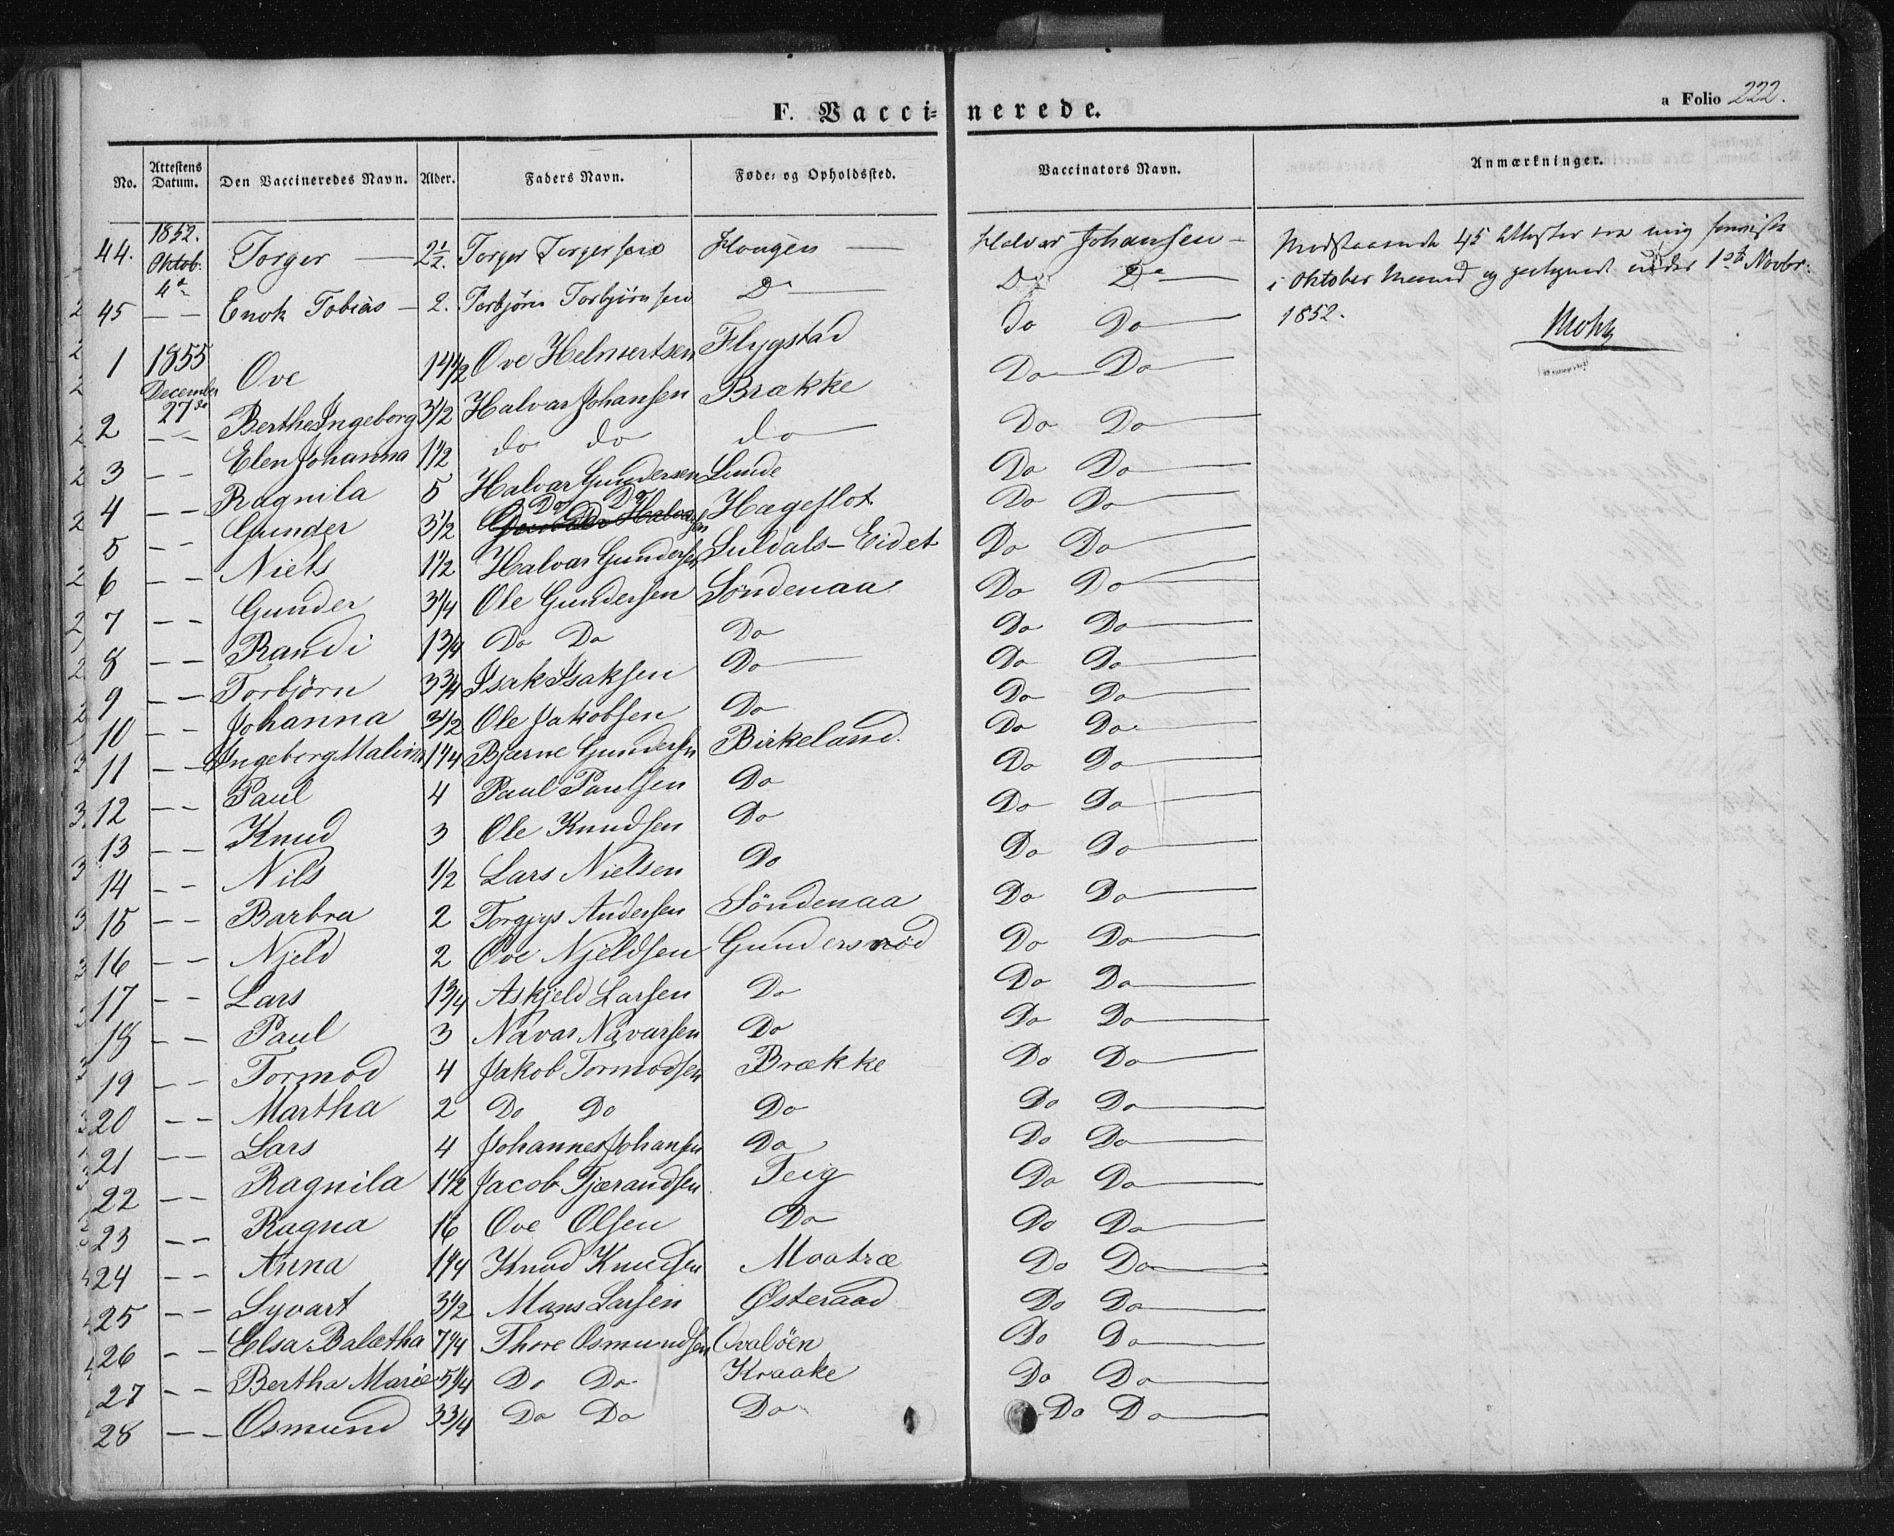 a Folio 222.
F. Vaccinerede.
No. Attestens Datum. Den Vaccineredes Navn. Alder. Faders Navn. Føde- og Opholdssted. Vaccinators Navn. Anmærkninger.
44. 1852. Oktob. 4de Torger — 2½. Torger Torgersen Hougen — Halvar Johansen —
45 — — Enok Tobias — 2. Torbjørn Torbjørnsen Do — Do Do —
Modstaaende 45 Attester ere mig
i Oktober Maaned og under 1ste Novbr.
1852.
1 1855 December 27de Ove 14½ Ove Helmertsen Flygstad Do Do —
2 — — Berthe Ingeborg 3½ Halvar Johansen Brække Do — Do —
3 — — Elen Johanna 1½ do do do — Do Do —
4 — — Ragnila 5 Halvar Gundersen Lunde Do Do —
5 — — Gunder 3½ Do Do Hageflot Do Do —
6 — — Niels 1½ Halvar Gundersen Suldals-Eidet Do Do —
7 — — Gunder 3¼ Ole Gundersen Søndenaa Do Do —
8 — — Randi 1¾ Do Do Do Do Do —
9 — — Torbjörn 3¾ Isak Isaksen Do — Do Do —
10 — — Johanna 3½ Ole Jakobsen Do Do Do —
11 — — Ingeborg Malina 1¼ Bjarne Gundersen Birkeland. Do Do —
12 — — Paul 4 Paul Paulsen Do Do Do —
13 — — Knud 3 Ole Knudsen Do Do Do —
14 — — Nils ½ Lars Nielsen Do Do Do —
15 — — Barbra 2 Torgjys Andersen Söndenaa Do Do —
16 — — Njeld 2 Ove Njeldsen Gundersnød Do Do —
17 — — Lars 1¾ Askjeld Larsen Do Do Do —
18 — — Paul 3 Navar Navarsen Do Do Do —
19 — — Tormod 4 Jakob Tormodsen Brække Do Do —
20 — — Martha 2 Do Do Do Do Do —
21 — — Lars 4 Johannes Johansen Do Do Do —
22 — — Ragnila 1½ Jacob Tjærandsen Teig Do Do —
23 — — Ragna 16 Ove Olsen Do Do Do —
24 — — Anna 1¼ Knud Knudsen Moatræ Do Do —
25 — — Syvart 3½ Mans Larsen Østeraad Do Do —
26 — — Elsa Baletha 7¼ Thore Osmundsen Do Do —
27 — — Bertha Marie 5¼ Do Do Kraake Do Do —
28 — — Osmund 3¾ Do Do Do Do Do —